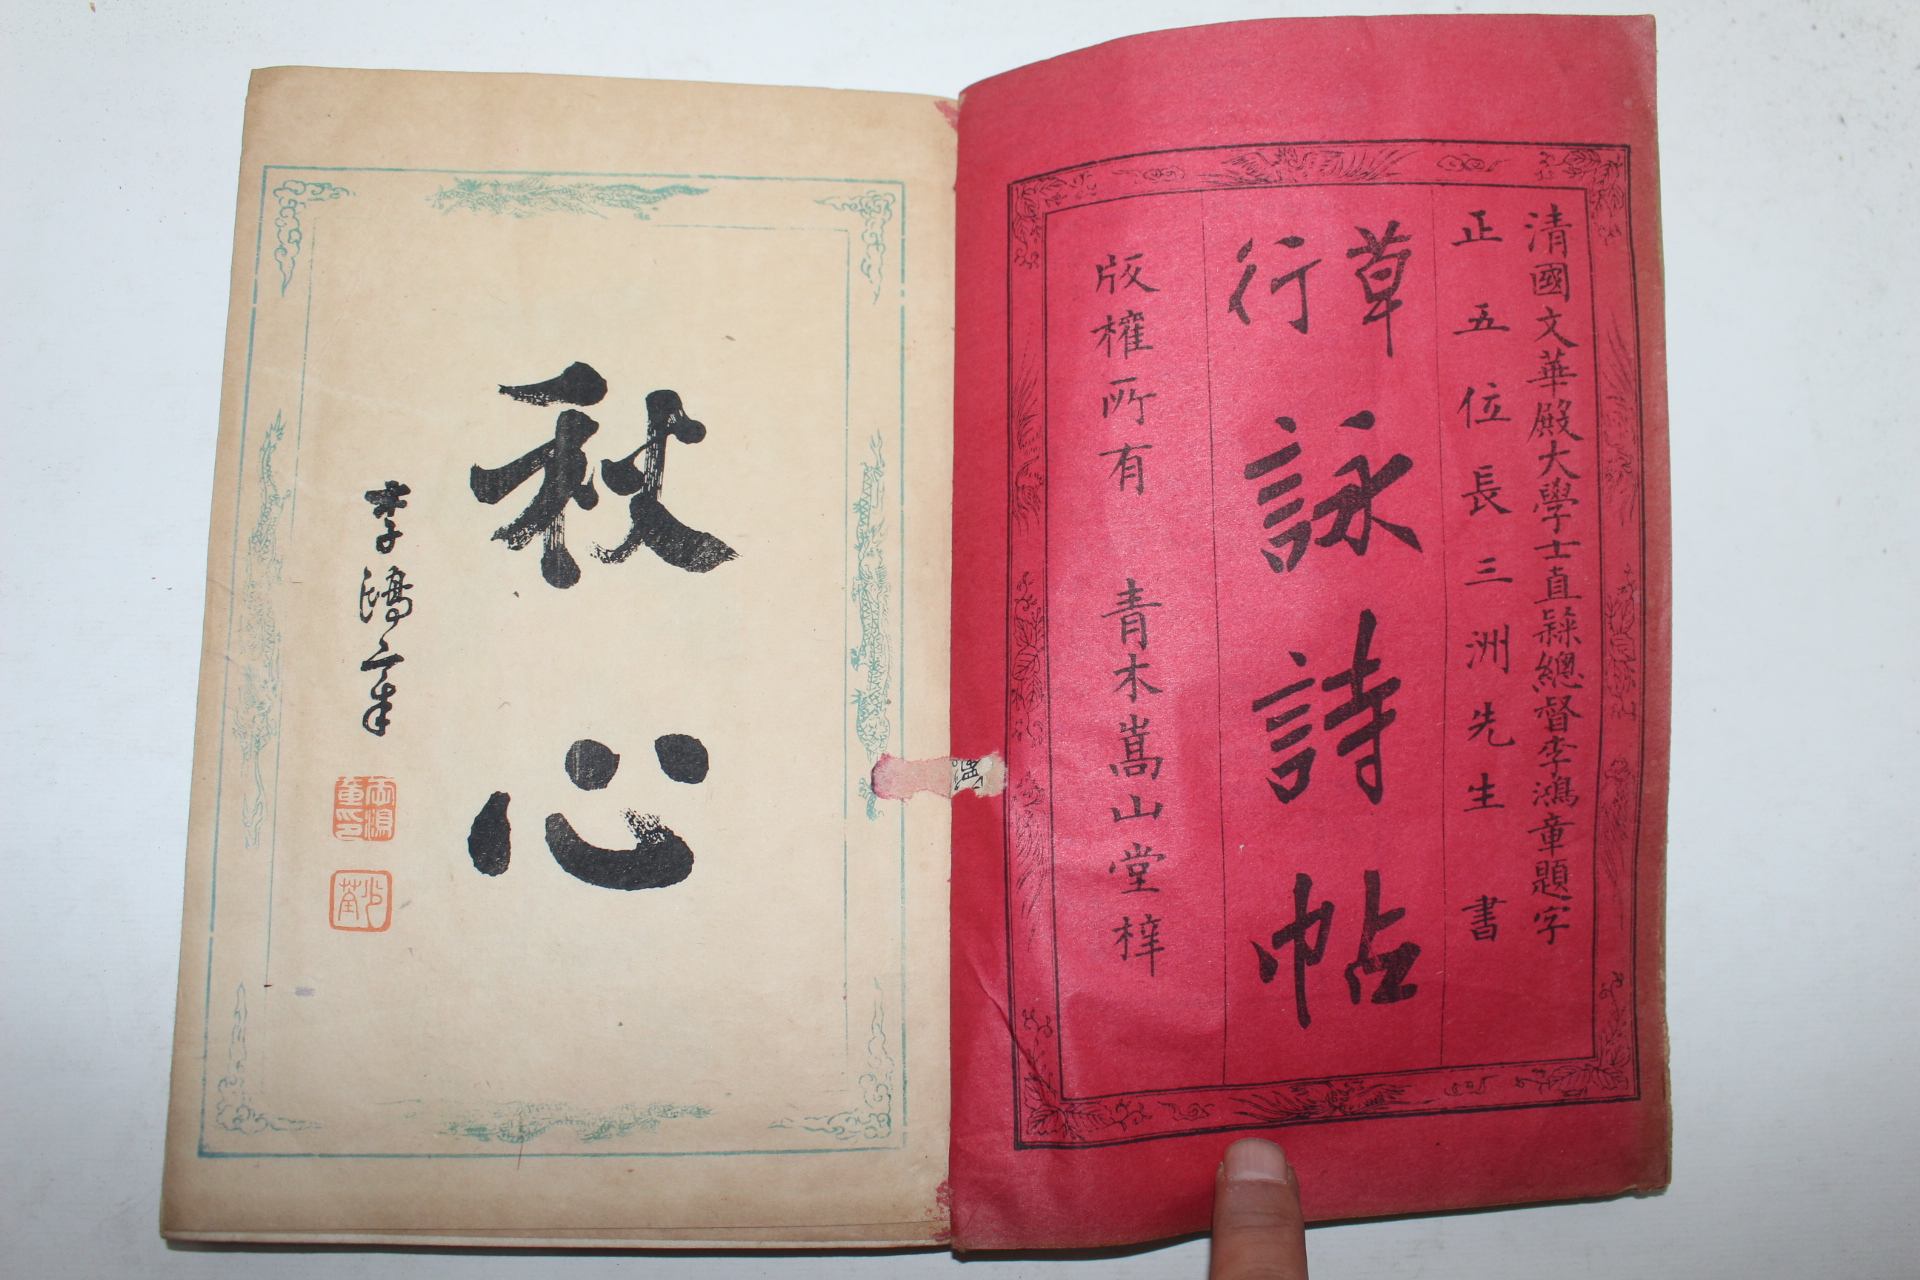 清國文華殿大學士直隷總督李鴻章題字
正五位長三洲先生書
草行詠詩帖
版權所有 青木嵩山堂梓
秋心
李鴻章
李鴻章印
少荃